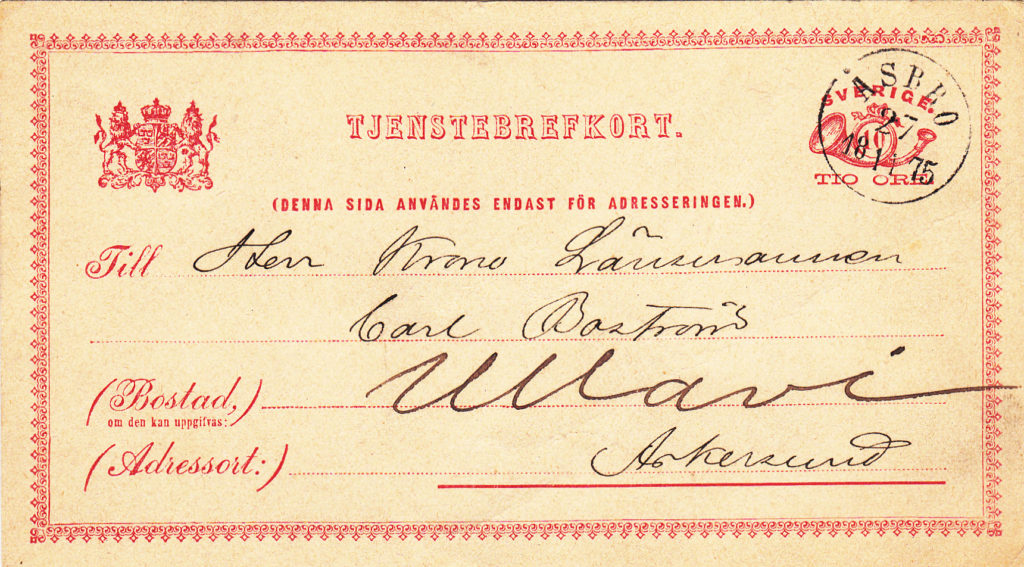 TJENSTEBREFKORT.
SVERIGE.
10
TIO ÖRE
ÅSBRO
27
18 11 75
(DENNA SIDA ANVÄNDES ENDAST FÖR ADRESSERINGEN.)
Till Herr Krono Länsmannen
Carl Boström
(Bostad,) Ullavi
om den kan uppgifvas:
(Adressort:) Askersund